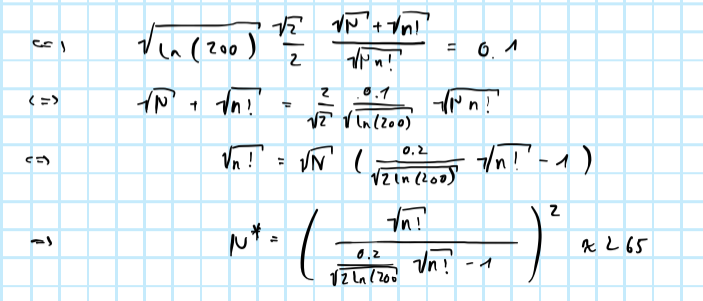 <=> √(ln(200)) √2/2 (√N + √n!)/√(N n!) = 0.1
<=> √N + √n! = 2/√2 0.1/√(ln(200)) √(N n!)
<=> √n! = √N ( 0.2/√(2 ln(200)) √n! - 1 )
=> N* = ( √n! / ( 0.2/√(2 ln(200)) √n! - 1 ) )² ≈ 265